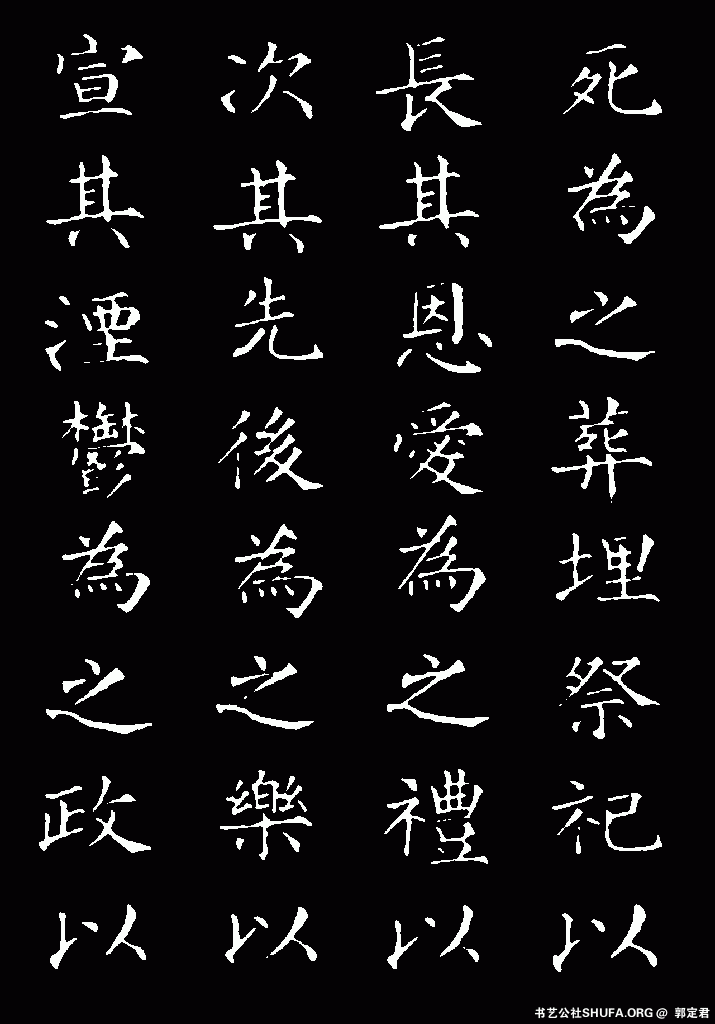 死為之葬埋祭祀以
長其恩愛為之禮以
次其先後為之樂以
宣其湮鬱為之政以
书艺公社SHUFA.ORG @ 郭定君